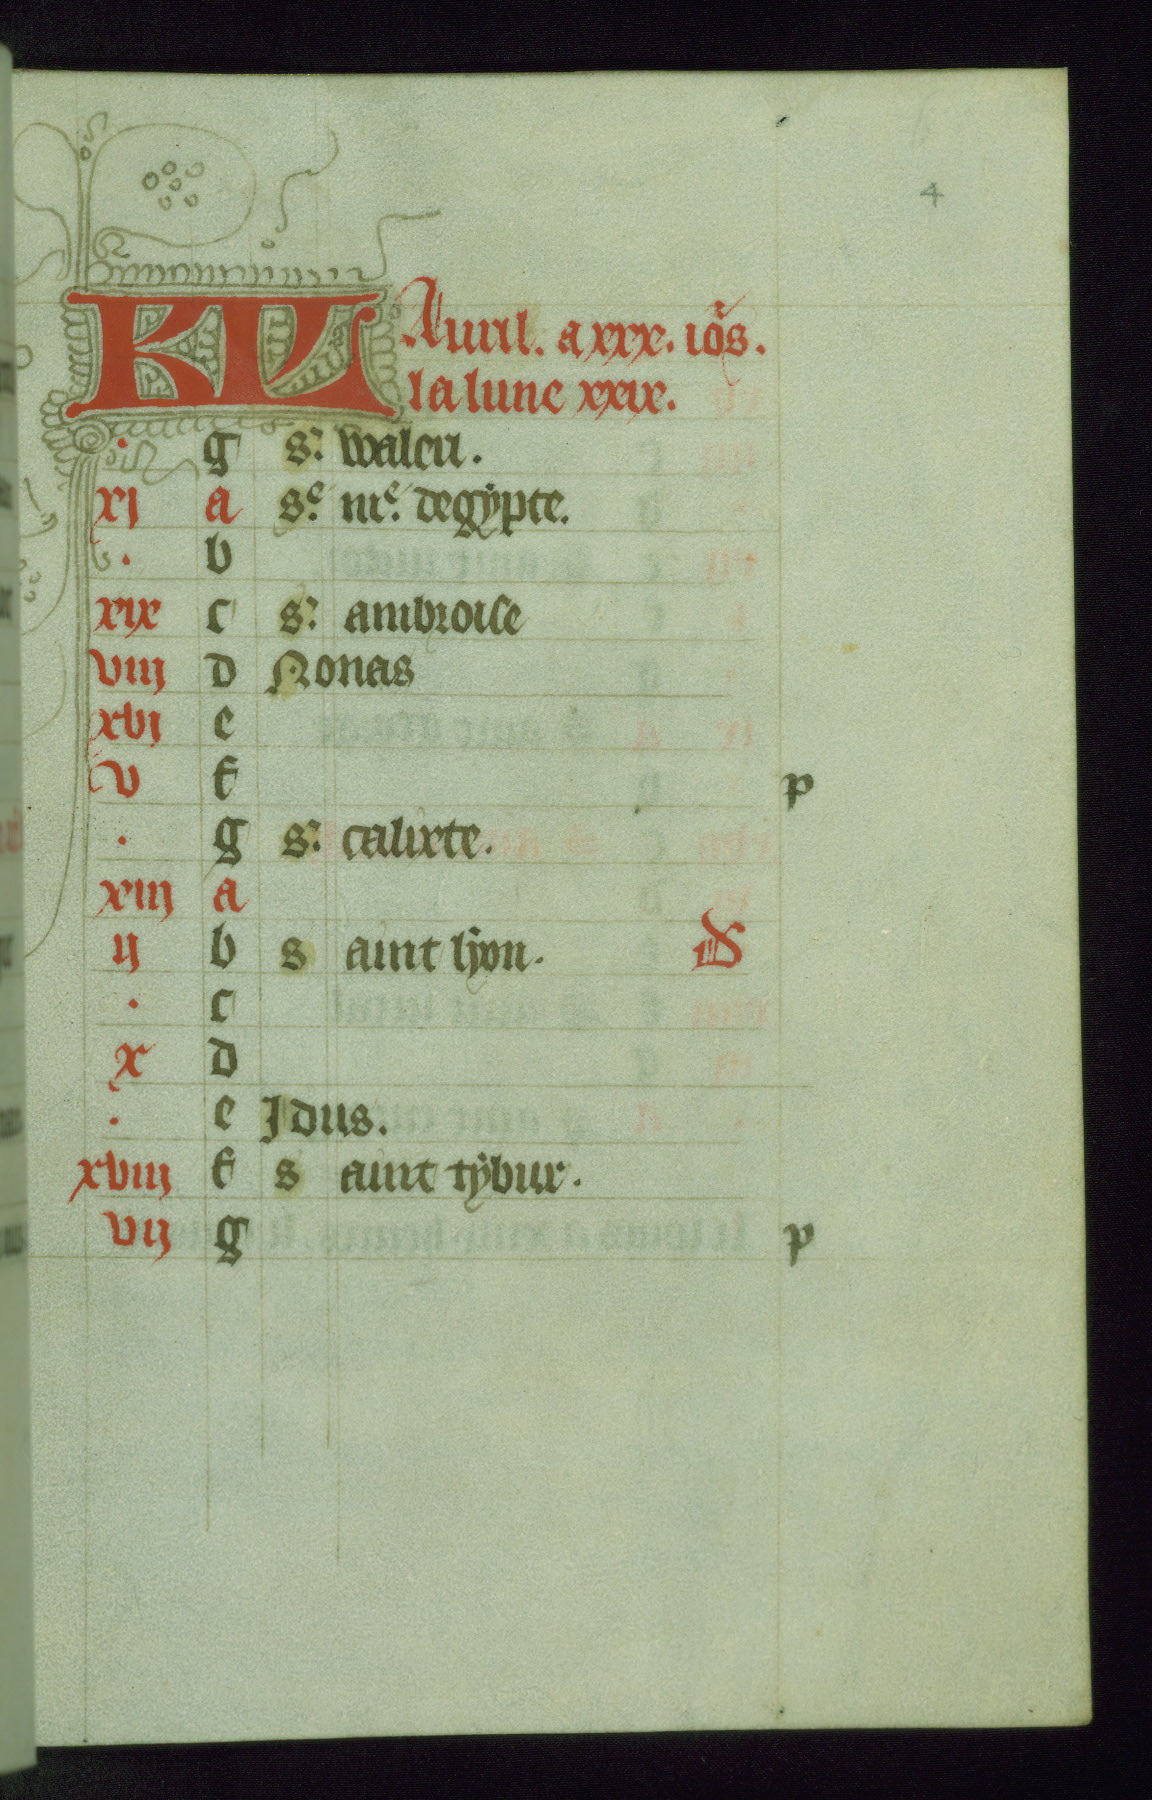 4
KL Auril. a xxx. iōs.
la lune xxix.
. g s͛. waleri.
xj a sᵉ. mᵉ. degÿpte.
. b
xix c s͛. ambroise
viij d Nonas
xvj e
v f p
. g s͛. calixte.
xiij a
ij b s aint lÿon. D
. c
x d
. e Jdus.
xviij f s aint tÿbur.
vij g p